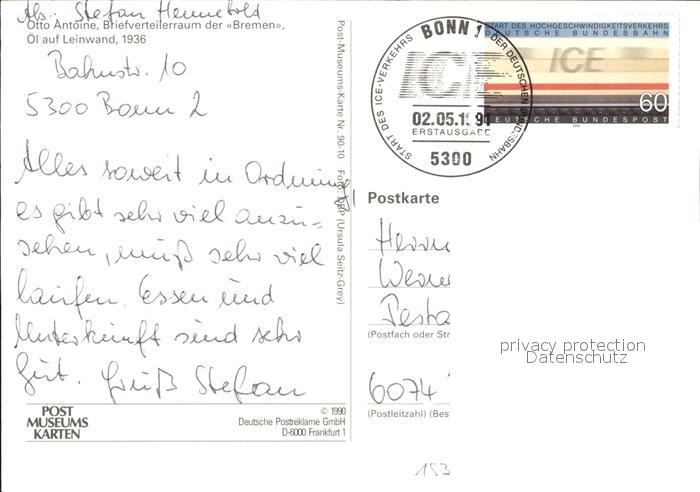 Abs. Stefan Hennebold
Otto Antoine, Briefverteilerraum der «Bremen»,
Öl auf Leinwand, 1936
Bahnstr. 10
5300 Bonn 2
Alles soweit in Ordnung!
es gibt sehr viel anzu-
sehen, muß sehr viel
laufen. Essen und
Unterkunft sind sehr
gut. Gruß Stefan
POST
MUSEUMS
KARTEN
© 1990
Deutsche Postreklame GmbH
D-6000 Frankfurt 1
Post-Museums-Karte Nr. 90-10 Foto: (Ursula Seitz-Grey)
START DES ICE-VERKEHRS
BONN 1
DER DEUTSCHEN BUNDESBAHN
ICE
02.05.1991
ERSTAUSGABE
5300
START DES HOCHGESCHWINDIGKEITSVERKEHRS
DEUTSCHE BUNDESBAHN
ICE
60
DEUTSCHE BUNDESPOST
Postkarte
Herrn
Werne
Pesta
(Postfach oder Str
privacy protection
Datenschutz
6074
(Postleitzahl) (Bes
153